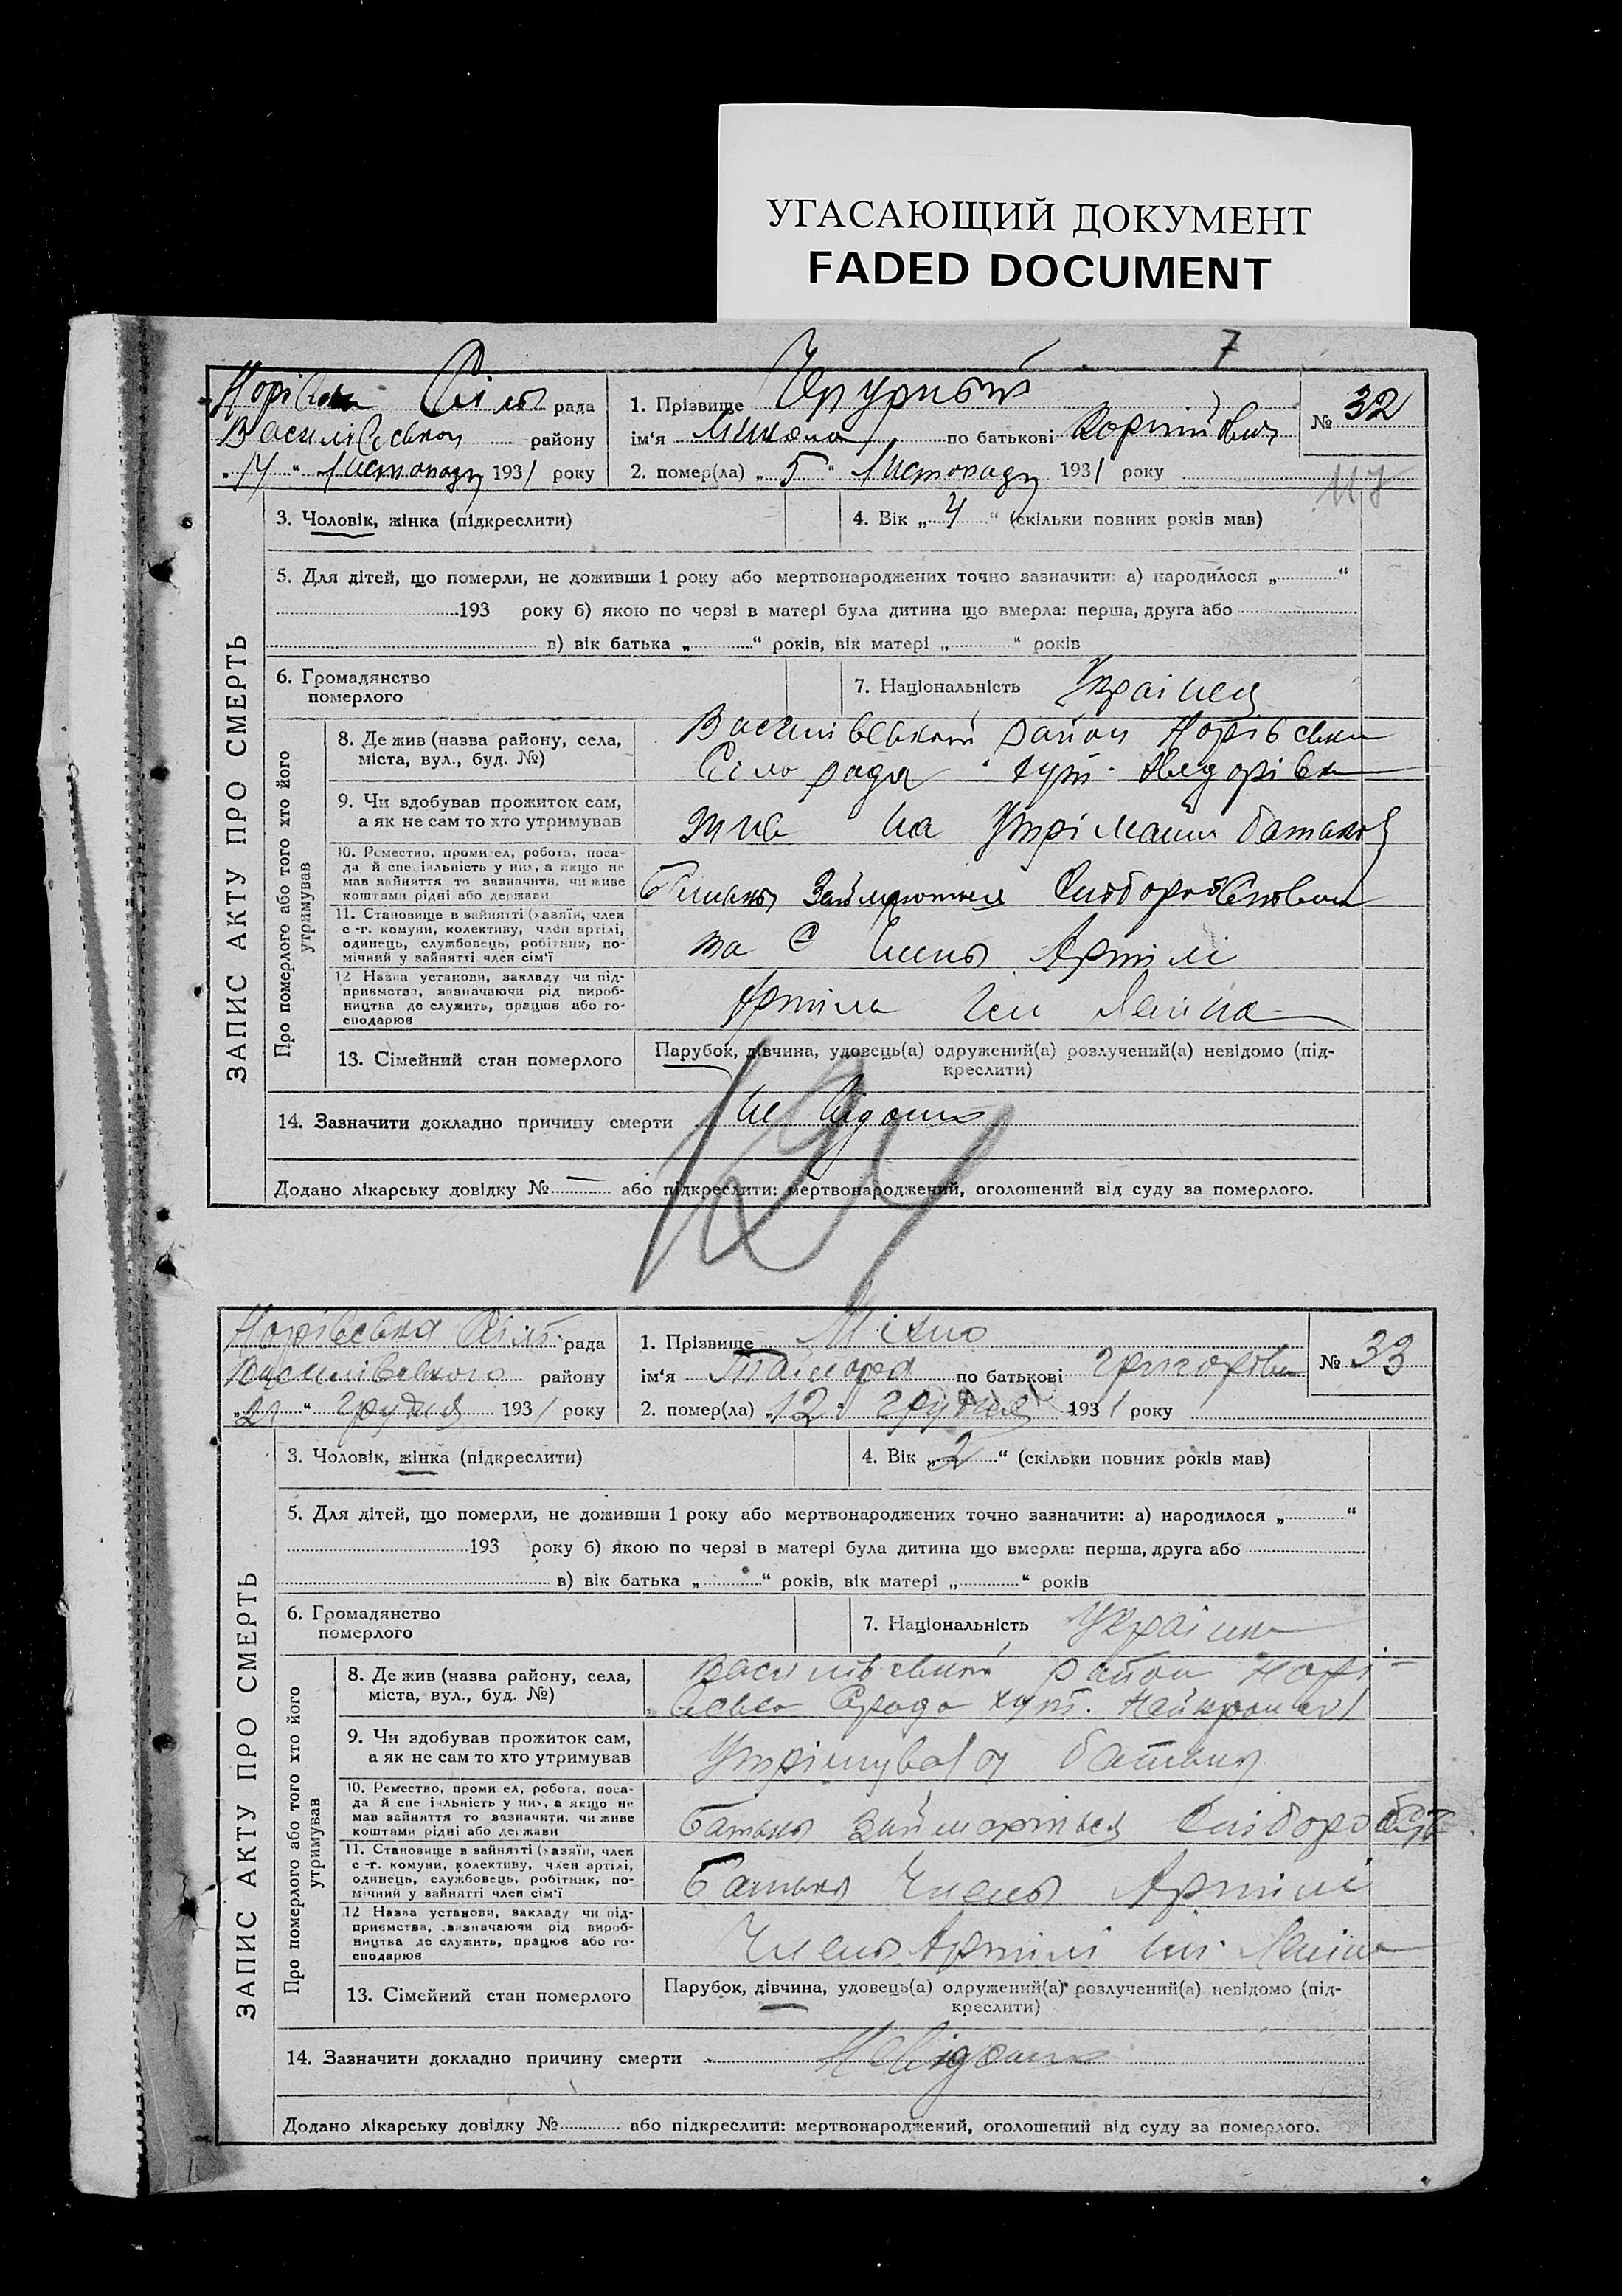 УГАСАЮЩИЙ ДОКУМЕНТ
FADED DOCUMENT
7
Сіль рада
1. Прізвище
№ 32
району
ім'я Микола по батькові
„14“ Листопаду 1931 року
2. помер(ла) „5“ Листопаду 1931 року
117
ЗАПИС АКТУ ПРО СМЕРТЬ
3. Чоловік, жінка (підкреслити)
4. Вік „4“ (скільки повних років мав)
5. Для дітей, що померли, не доживши 1 року або мертвонароджених точно зазначити: а) народилося „ “
193 року б) якою по черзі в матері була дитина що вмерла: перша, друга або
в) вік батька „ “ років, вік матері „ “ років
6. Громадянство
померлого
7. Національність Українец
Про померлого або того хто його
утримував
8. Де жив (назва району, села,
міста, вул., буд. №)
Василівський район Норівська
Сіло рада хут.
9. Чи здобував прожиток сам,
а як не сам то хто утримував
жив на Утрімании батьков
10. Ремество, промисел, робота, поса-
да й спеціяльність у них, а якщо не
мав зайняття то зазначити, чи живе
коштами рідні або держави
11. Становище в зайнятті (хазяїн, член
с-г. комуни, колективу, член артілі,
одинець, службовець, робітник, по-
мічний у зайнятті член сім'ї
та є Члены Артілі
12 Назва установи, закладу чи під-
приємства, зазначаючи рід вироб-
ництва де служить, працює або го-
сподарює
Артіль Леніна
13. Сімейний стан померлого
Парубок, дівчина, удовець(а) одружений(а) розлучений(а) невідомо (під-
креслити)
14. Зазначити докладно причину смерти не відомо
Додано лікарську довідку № — або підкреслити: мертвонароджений, оголошений від суду за померлого.
Норівська Сіль. рада
1. Прізвище Міхно
№ 33
Василівського району
ім'я по батькові
„21“ Грудня 1931 року
2. помер(ла) „12“ Грудня 1931 року
ЗАПИС АКТУ ПРО СМЕРТЬ
3. Чоловік, жінка (підкреслити)
4. Вік „2“ (скільки повних років мав)
5. Для дітей, що померли, не доживши 1 року або мертвонароджених точно зазначити: а) народилося „ “
193 року б) якою по черзі в матері була дитина що вмерла: перша, друга або
в) вік батька „ “ років, вік матері „ “ років
6. Громадянство
померлого
7. Національність Українка
Про померлого або того хто його
утримував
8. Де жив (назва району, села,
міста, вул., буд. №)
Василівський район Норі-
вська С/рада хут.
9. Чи здобував прожиток сам,
а як не сам то хто утримував
батьки
10. Ремество, промисел, робота, поса-
да й спеціяльність у них, а якщо не
мав зайняття то зазначити, чи живе
коштами рідні або держави
11. Становище в зайнятті (хазяїн, член
с-г. комуни, колективу, член артілі,
одинець, службовець, робітник, по-
мічний у зайнятті член сім'ї
Батьки Члены Артілі
12 Назва установи, закладу чи під-
приємства, зазначаючи рід вироб-
ництва де служить, працює або го-
сподарює
Члены Артілі ім. Леніна
13. Сімейний стан померлого
Парубок, дівчина, удовець(а) одружений(а) розлучений(а) невідомо (під-
креслити)
14. Зазначити докладно причину смерти Невідомо
Додано лікарську довідку № або підкреслити: мертвонароджений, оголошений від суду за померлого.